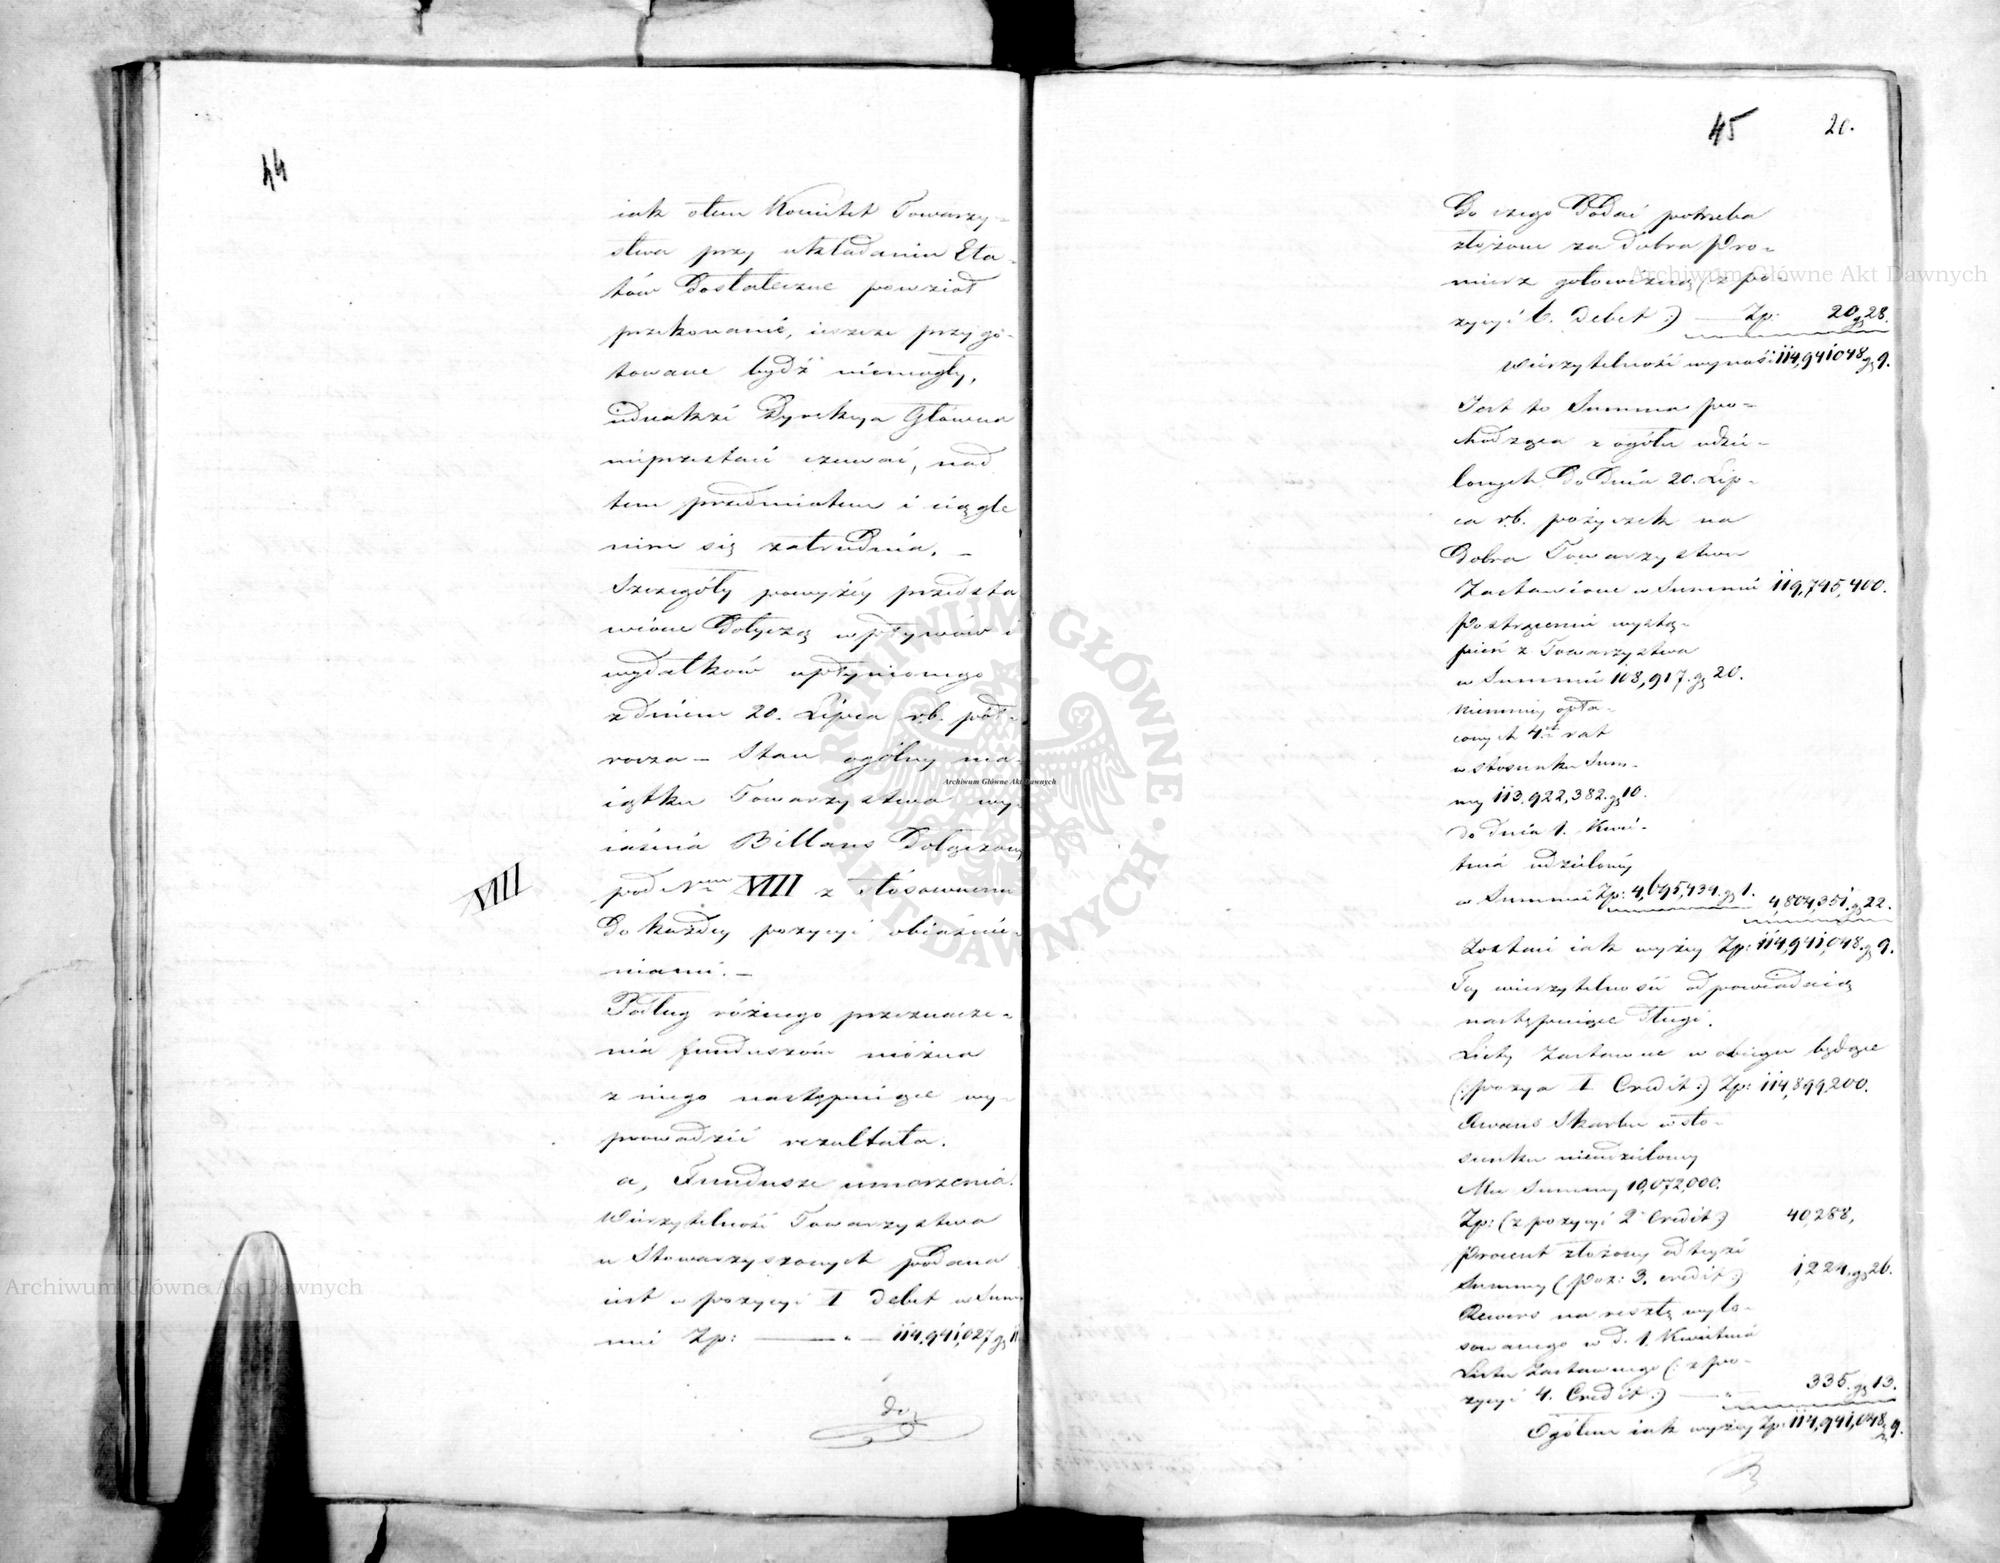 44
iak otem Komitet Towarzy-
stwa przy układaniu Eta-
tów dostateczne powziął
przekonanie, ieszcze przygo-
towane bydź niemogły,
iednakże Dyrekcya Główna
nieprzestaie czuwać, nad
tem przedmiotem i ciągle
nim się zatrudnia. -
Szczegóły powyżéy przedsta
wione dotyczą wpływów i
wydatków upłynionego
z dniem 20. Lipca r.b. pół-
rocza - Stan ogólny ma-
iątku Towarzystwa wy-
iaśnia Billans dołączony
VIII
pod Nrem VIII z stosownemi
do każdey pozycyi obiaśnie-
niami. -
Podług różnego przeznacze-
nia funduszów można
z niego następuiące wy-
prowadzić rezultata.
a, Fundusze umorzenia.
Wierzytelność Towarzystwa
u Stowarzyszonych podana
iest w pozycyi I debet w Sum-
mie Zp: — „ — 114,941,027 gr 11
do
45
20.
Do czego dodać potrzeba
złożone za dobra Pro-
mierz gotowizną (z po-
zycyi 6. Debet :) — Zp: 20 gr 28.
Wierzytelność wynosi: 114,941048 gr 9.
Jest to Summa po-
chodząca z ogółu udzie-
lonych do dnia 20. Lip-
ca r.b. pożyczek na
Dobra Towarzystwu
Zastawione w Summie 119,745,400.
Po strąceniu wystą-
pień z Towarzystwa
w Summie 108,917. gr 20.
niemniéy opła-
conych 4ch rat
w stosunku Sum-
my 113.922,382. gr 10.
do dnia 1. Kwie-
tnia udzieloney
w Summie Zp: 4,695,434. gr 1. 4804,351. gr 22.
Zostaie iak wyżey Zp: 114,941,048. gr 9.
Téy wierzytelności odpowiadaią
następuiące długi.
Listy Zastawne w obiegu będące
(: pozycya I Credit :) Zp: 114,899,200.
Awans Skarbu w sto-
sunku nieudzieloney
Mu Summy 10,072,000.
Zp: (z pozycyi 2 Credit :) 40,288,
Procent złożony od teyże
Summy (Poz: 3. credit :) 1,224. gr 26.
Rewers na resztę wylo-
sowanego w d. 1. Kwietnia
Listu Zastawnego (: z po-
zycyi 4. Credit :) — „ — 335. gr 13.
Ogółem iak wyżey Zp: 114,941,048 gr 9.
Archiwum Główne Akt Dawnych
Archiwum Główne Akt Dawnych
Archiwum Główne Akt Dawnych
ARCHIWUM GŁÓWNE AKT DAWNYCH